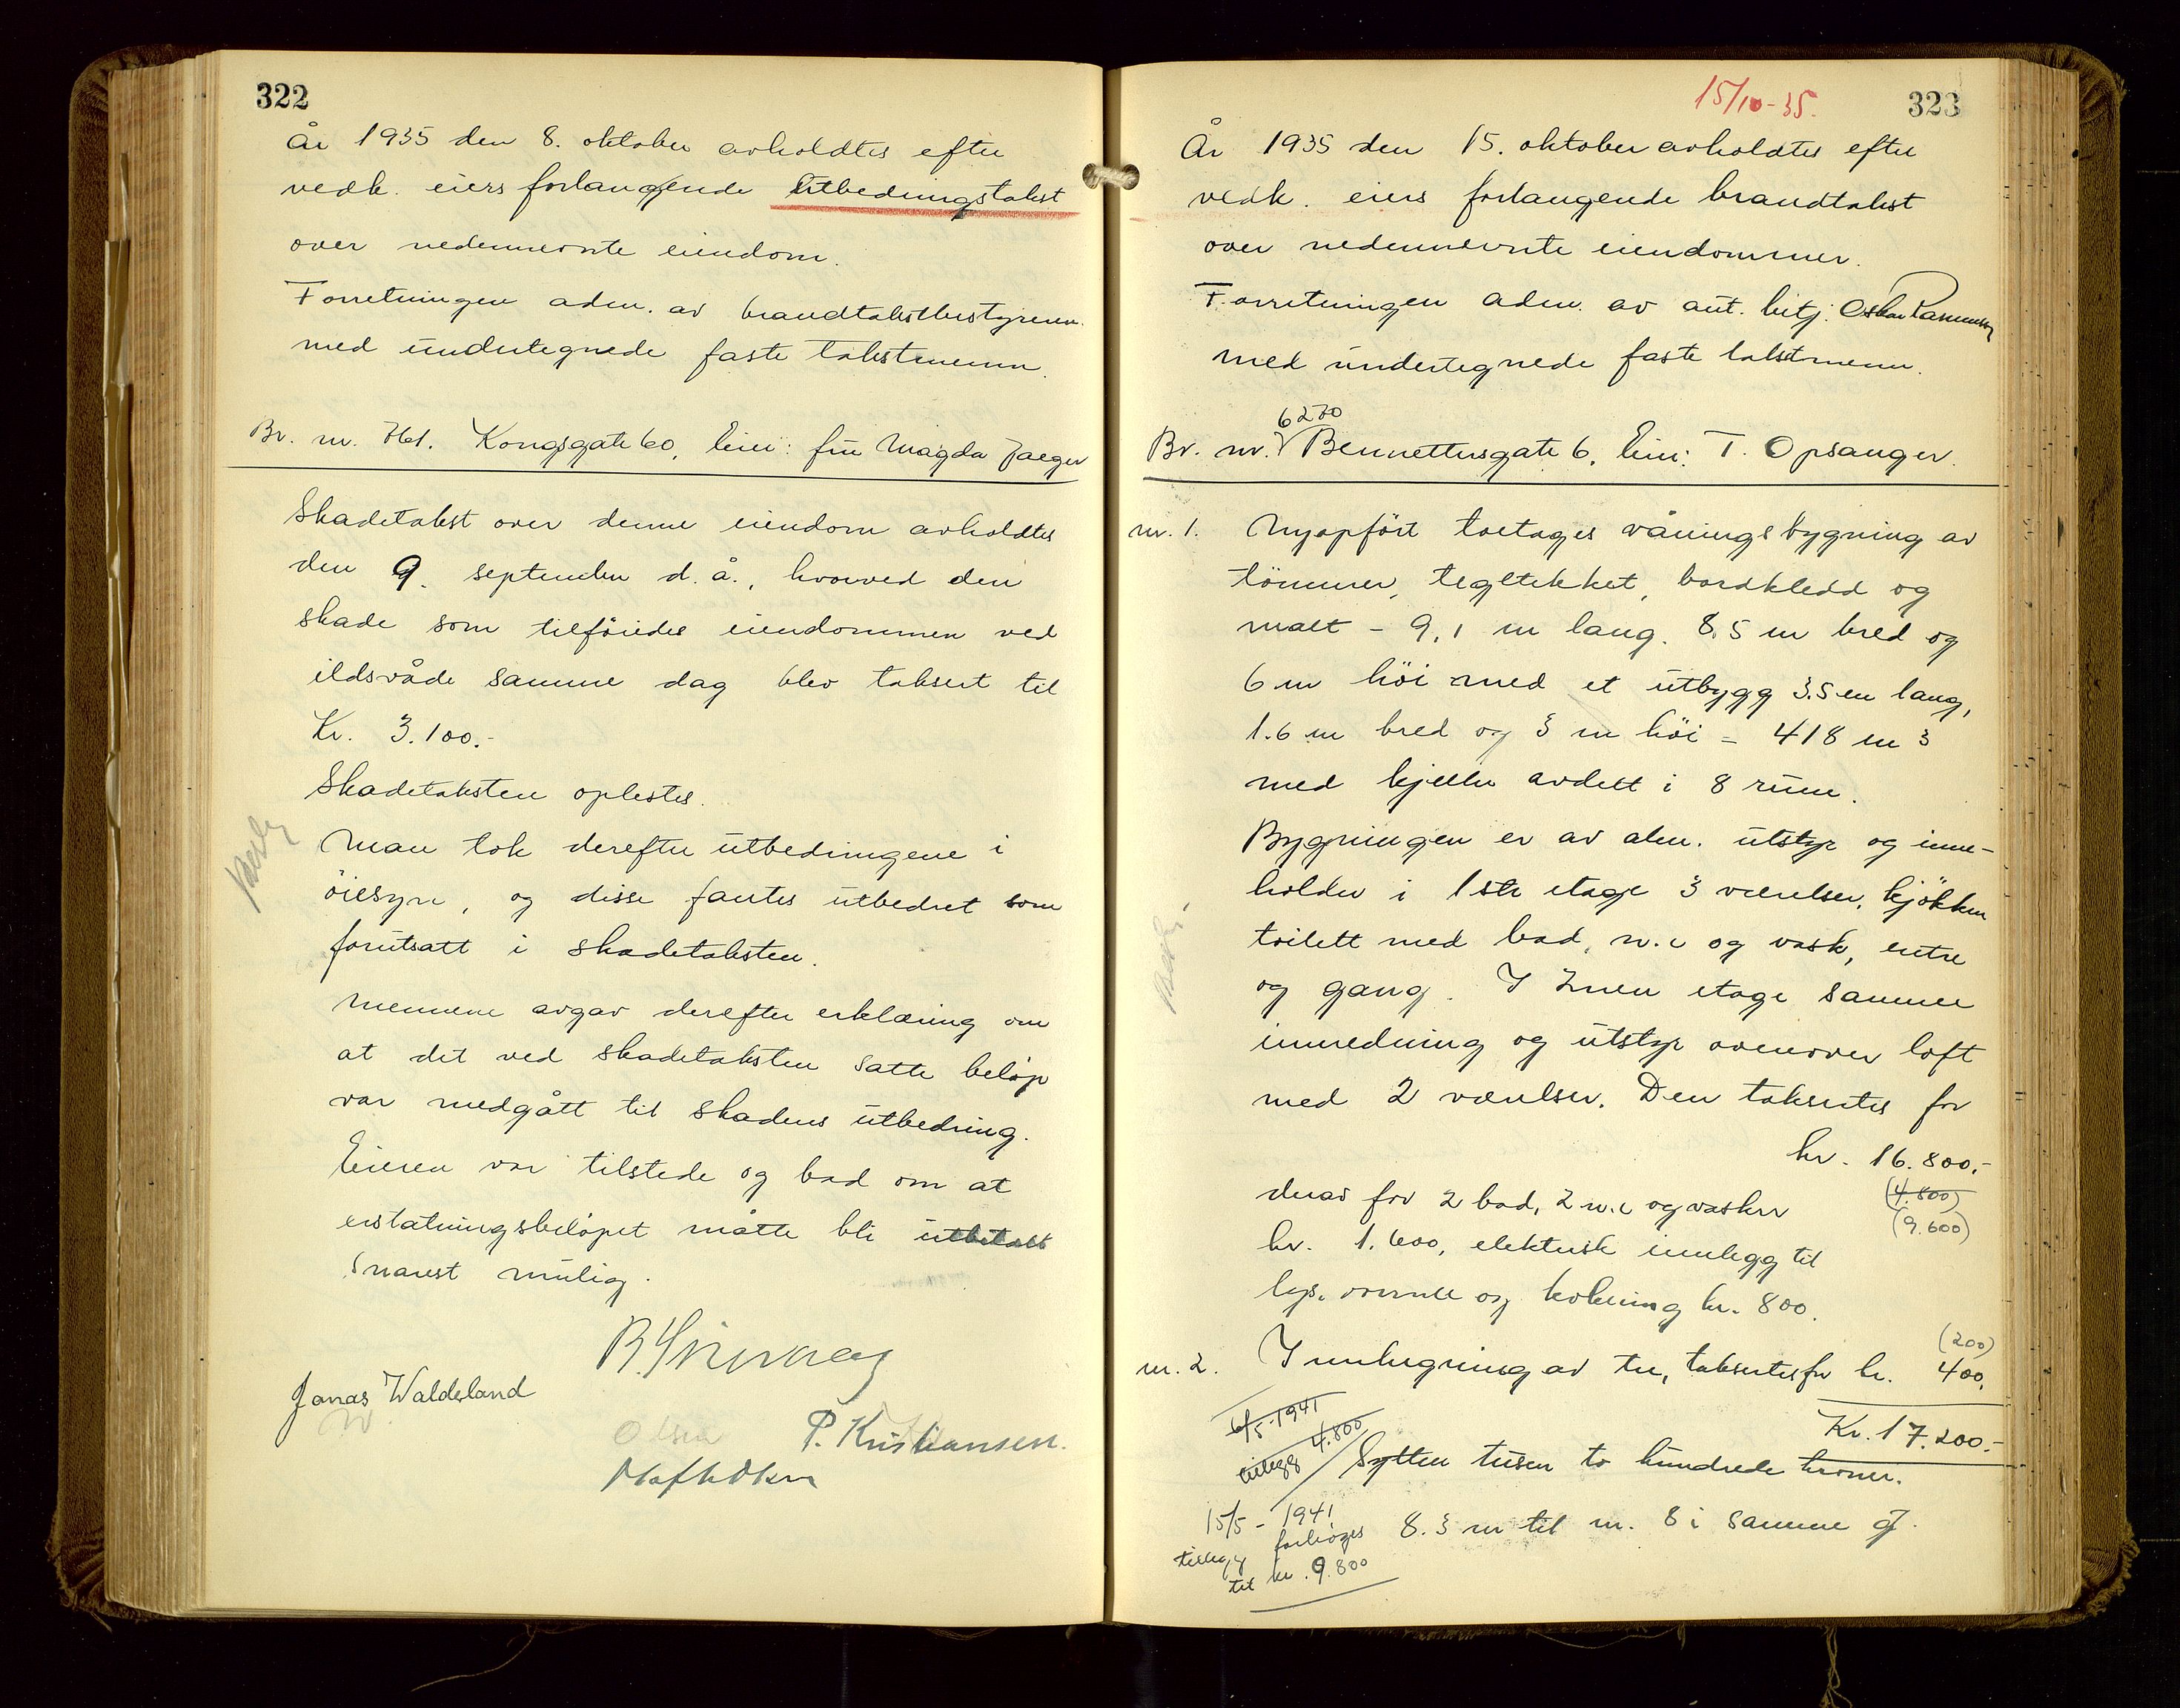 322
År 1935 den 8. oktober avholdtes efter
vedk. eiers forlangende Utbedringstakst
over nedennevnte eiendom.
Forretningen adm. av brandtakstbestyreren
med undertegnede faste takstmenn.
Br. nr. 761. Kongsgate 60, Eier: fru Magda Jaeger
Skadetakst over denne eiendom avholdtes
den 9. september d. å., hvorved den
skade som tilføredes eiendommen ved
ildsvåde samme dag blev taksert til
Kr. 3.100.-
Skadetaksten oplestes.
Man tok derefter utbedringene i
öiesyn, og disse fantes utbedret som
forutsatt i skadetaksten.
Mennene avgav derefter erklæring om
at det ved skadetaksten satte beløp
var medgått til skadens utbedring.
Eieren var tilstede og bad om at
erstatningsbeløpet måtte bli utbetalt
snarest mulig.
Jonas Waldeland
Olsen P. Kristiansen.
323
15/10-35.
År 1935 den 15. oktober avholdtes efter
vedk. eiers forlangende brandtakst
over nedennevnte eiendommer.
Forretningen adm. av aut. betj. Oskar Rasmussen
med undertegnede faste takstmenn.
6270
Br. nr. Bennettersgate 6, Eier: T. Opsanger.
nr. 1. Nyopfört toetages våningsbygning av
tömmer, tegltekket, bordkledd og
malt - 9,1 m lang. 8,5 m bred og
6 m höi med et utbygg 3.5 m lang,
1.6 m bred og 3 m höi = 418 m3
med kjeller avdelt i 8 rum.
Bygningen er av alm. utstyr og inne-
holder i 1ste etage 3 værelser, kjökken
toilett med bad, w.c og vask, entre
og gang. I 2nen etage samme
innredning og utstyr ovenover loft
med 2 værelser. Den takseres for
kr. 16.800.-
derav for 2 bad, 2 w.c og vasker (4.800)
(9.600)
kr. 1.600, elektrisk innlegg til
lys, varme og kokning kr. 800.
(200)
nr. 2. Innhegning av tre, takseres for kr. 400,
Kr. 17.200.-
6/5-1941
tillegg 4.800
Sytten tusen to hundrede kroner.
15/5 - 1941 8.3 m til nr. 8 i samme g.
tillegg forhöies
til kr. 9.800